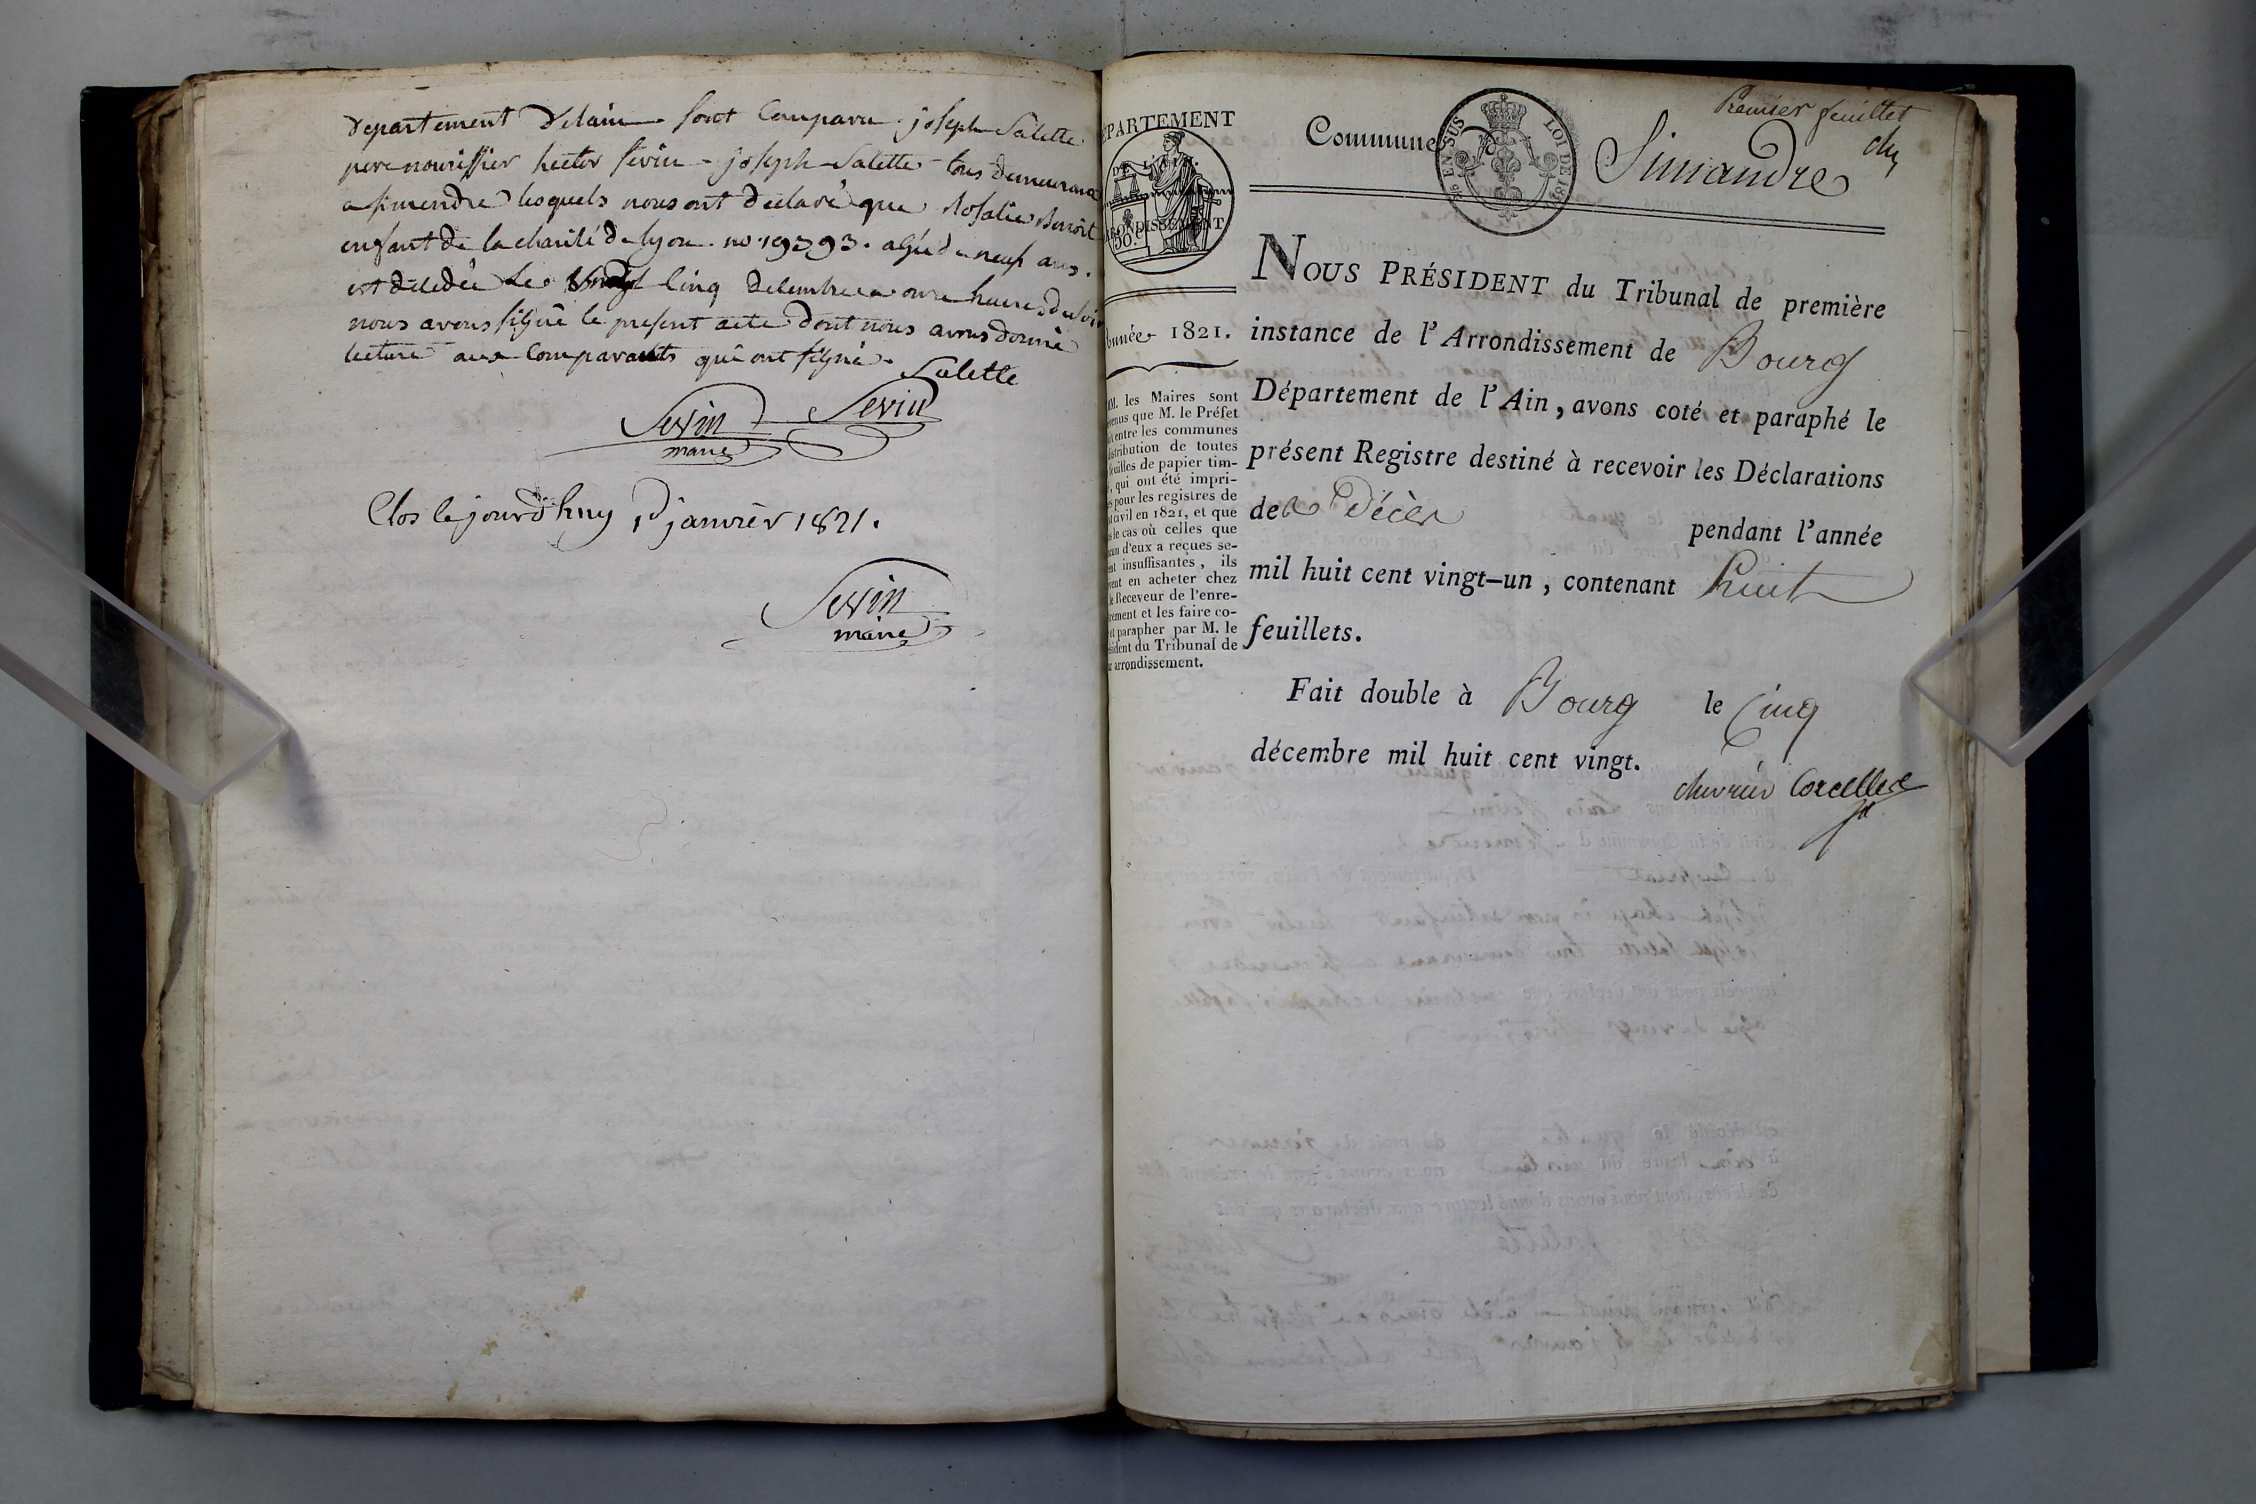 Departement Delain sont Comparu joseph Salette
pere nourissier hector sevin - joseph Salette tous demeurant
a simendre lesquels nous ont declaré que Rosalie Benoit
enfant de la charité de lyon. no. 19393. agée de neuf ans.
est décédée le vingt cinq decembre a onze heures du soir
nous avons signé le present acte dont nous avons donné
lecture aux Comparants qui ont signé.
Salette
Sevin Sevin
maire
Clos le jourd'huy 1 janvier 1821.
Sevin
maire
Premier feuillet
Commune Simandre
EN SUS LOI DE
DÉPARTEMENT
DE
ARRONDISSEMENT
50.c
Année 1821.
MM. les Maires sont
prévenus que M. le Préfet
entre les communes
distribution de toutes
feuilles de papier tim-
qui ont été impri-
pour les registres de
civil en 1821, et que
le cas où celles que
chacun d'eux a reçues se-
insuffisantes, ils
en acheter chez
le Receveur de l'enre-
gistrement et les faire co-
et parapher par M. le
Président du Tribunal de
arrondissement.
NOUS PRÉSIDENT du Tribunal de première
instance de l'Arrondissement de Bourg
Département de l'Ain, avons coté et paraphé le
présent Registre destiné à recevoir les Déclarations
de Décès pendant l'année
mil huit cent vingt-un, contenant huit
feuillets.
Fait double à Bourg le Cinq
décembre mil huit cent vingt.
chevrier Corcelles